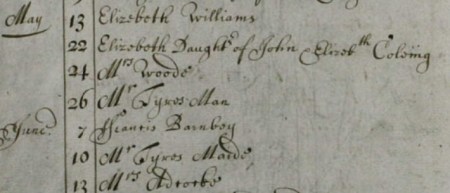 May 13 Elizeboth Williams
22 Elizeboth Daught^r of John & Elizeb^th Coleing
24 M^rs Woode
26 M^r Tyros Man
June 7 Francis Barnboy
10 M^r Tyros Maide
13 M^rs Adcocke